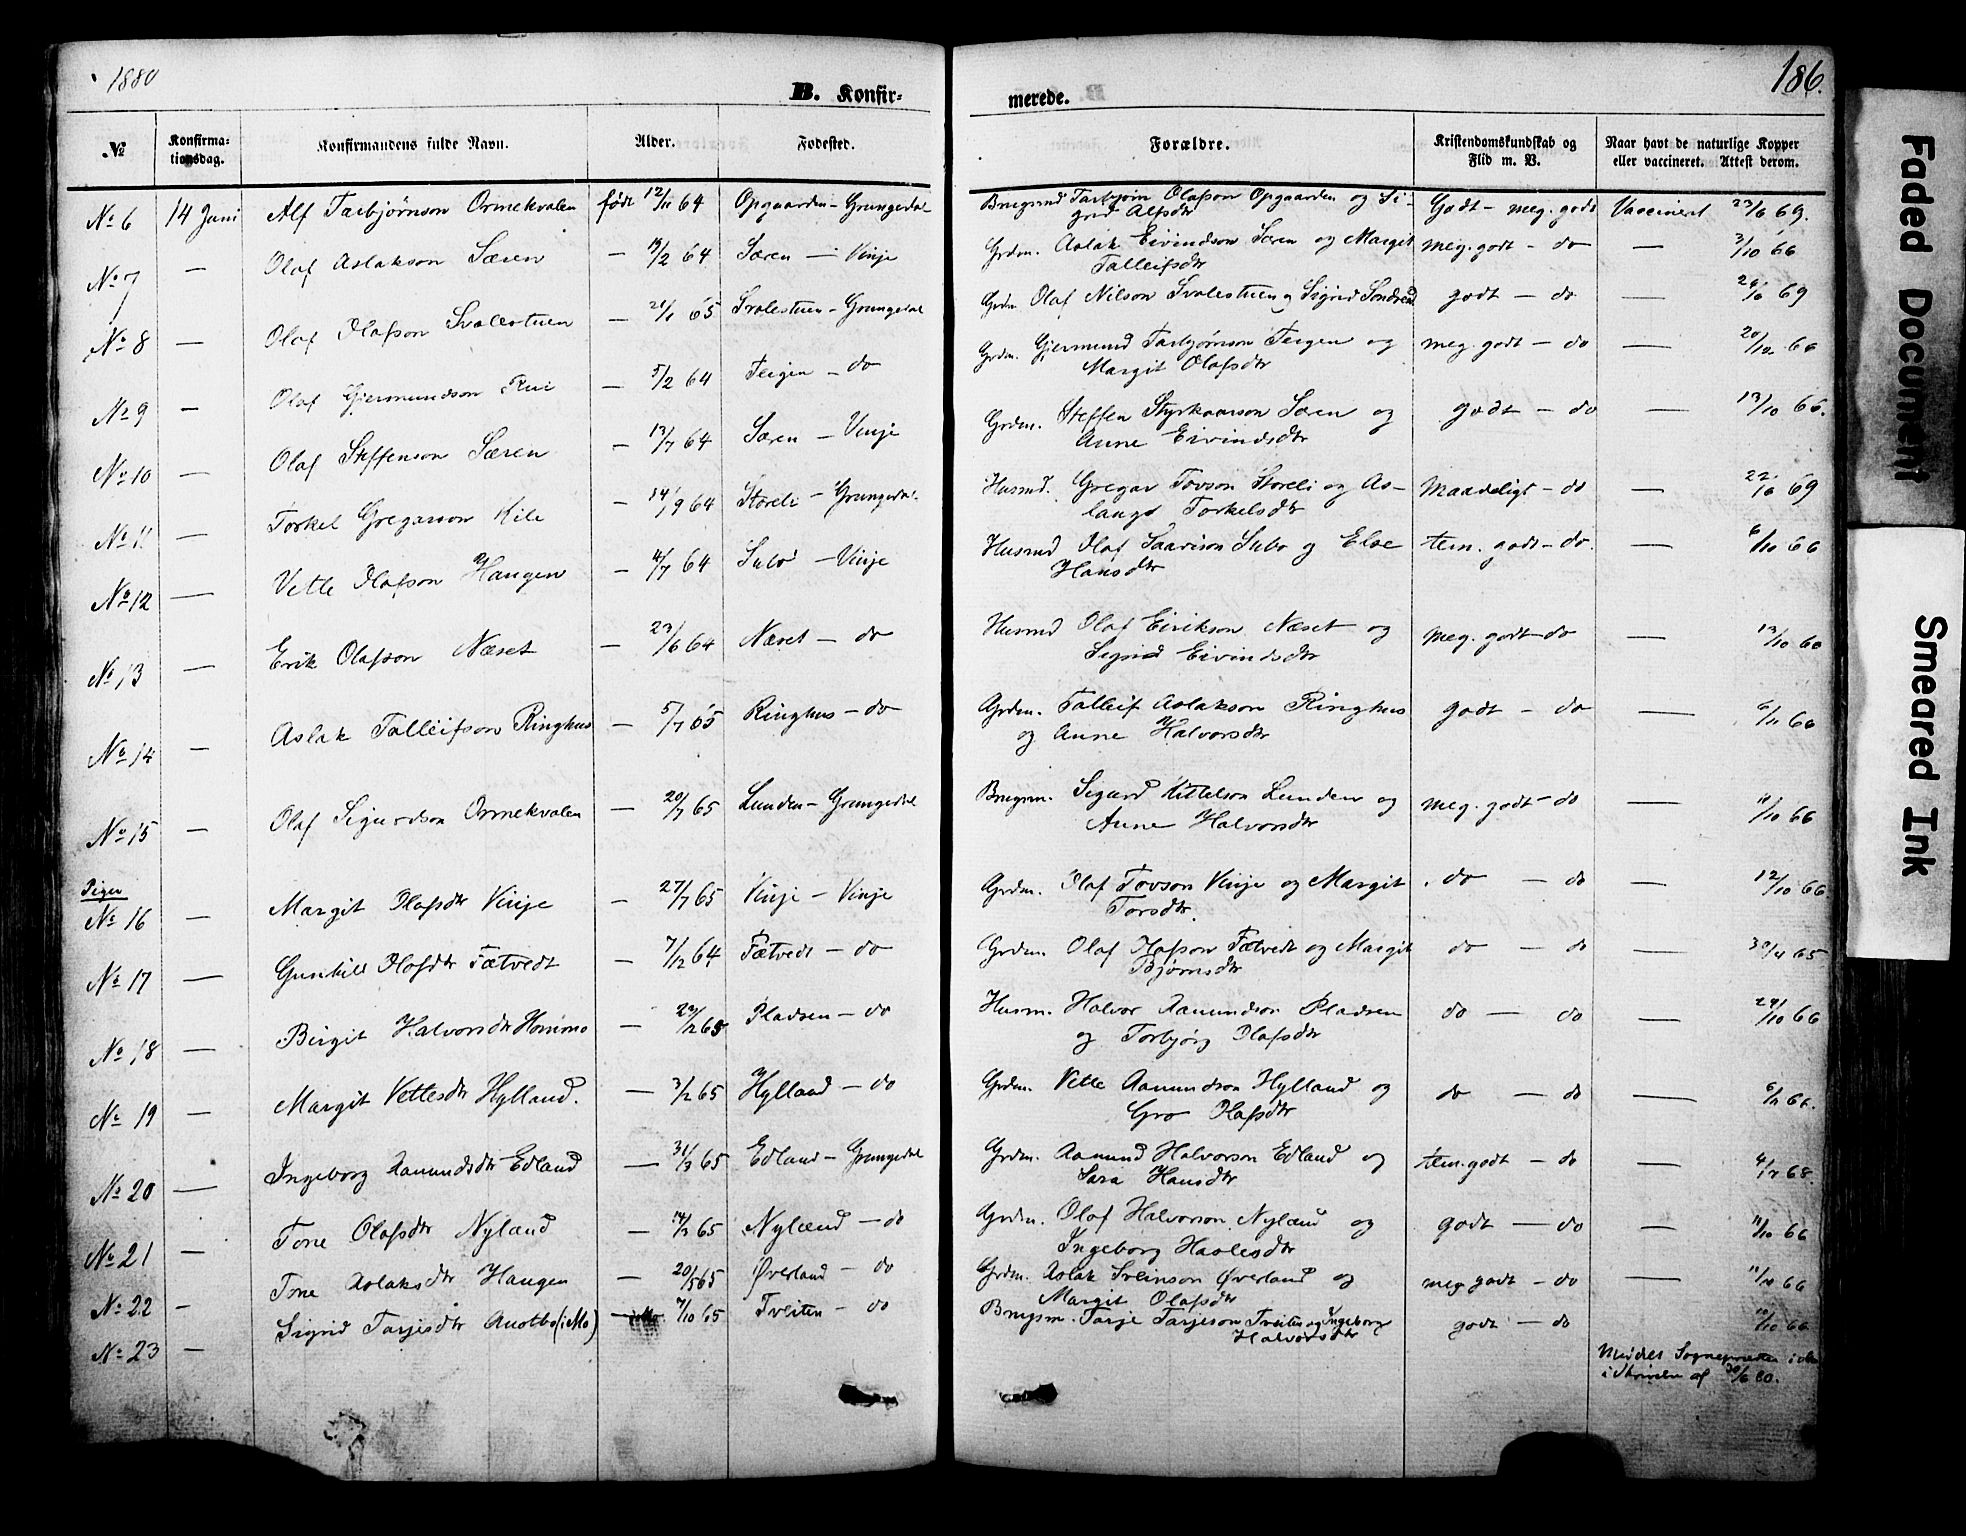 1880
186.
B. Konfir-
merede.
No
Konfirma-
tionsdag.
Konfirmandens fulde Navn.
Alder.
Fødested.
Forældre.
Kristendomskundskab og
Flid m. V.
Naar havt de naturlige Kopper
eller vaccineret. Attest derom.
No 6 14 Juni Alf Tarbjørnson Ormekvalen født 12/11 64 Opgaarden - Grungedal Brugsmd Tarbjørn Olafson Opgaarden og Si-
grid Alfsdtr Godt - meg. godt Vaccineret 23/6 69.
No 7 — Olaf Aslakson Særen — 19/2 64 Særen — Vinje Grdm. Aslak Eivindson Særen og Margit
Talleifsdtr meg. godt - do — 3/10 66
No 8 — Olaf Olafson Svalestuen — 21/1 65 Svalestuen - Grungedal Grdm Olaf Nilson Svalestuen og Sigrid godt — do — 69
No 9 — Olaf Gjermundson Rui — 5/2 64 Teigen — do Grdm. Gjermund Tarbjørnson Teigen og
Margit Olafsdtr meg. godt — do — 20/10 66
No 10 — Olaf Steffenson Særen — 13/7 64 Særen — Vinje Grdm. Steffen Styrkaarson Særen og
Anne Eivindsdtr godt — do — 13/10 66.
No 11 — Torkel Gregarson Kile — 14/9 64 Storeli - Grungedal Husmd. Gregar Tovson Storeli og As-
laug Torkelsdtr Maadeligt - do — 22/6 69
No 12 — Vetle Olafson Haugen — 4/7 64 — Vinje Husmd Olaf og Else
Hansdtr tem. godt - do. — 6/10 66
No 13 — Erik Olafson Næset — 23/6 64 Næset — do Husmd Olaf Eirikson Næset og
Sigrid Eivindsdtr meg. godt - do — 13/10 66
No 14 — Aslak Talleifson Ringhus — 5/7 65 Ringhus - do Grdm. Talleif Aslakson Ringhus
og Anne Halvorsdtr godt — do — 6/11 66
No 15 — Olaf Sigurdson Ormekvalen — 20/7 65 Lunden - Grungedal Brugsm. Sigurd Kittelson Lunden og
Anne Halvorsdtr meg. godt - do — 11/10 66
Piger
No 16 — Margit Olafsdtr Vinje — 27/7 65 Vinje - Vinje Grdm. Olaf Tovson Vinje og Margit
Torsdtr. do — do — 12/10 66
No 17 — Gunhild Olafsdtr Fætvedt — 7/12 64 Fætvedt — do Grdm. Olaf Olafson Fætvedt og Margit
Bjørnsdtr do — do 30/11 65
No 18 — Birgit Halvorsdtr Hommo — Pladsen — do Husm. Halvor Aamundson Pladsen
og Torbjørg Olafsdtr do — do — 29/10 66
No 19 — Margit Vettesdtr Hylland. — 3/2 65 Hylland — do Grdm. Vetle Aamundson Hylland og
Gro Olafsdtr do — do — 66.
No 20 — Ingeborg Aamundsdtr Edland — 31/3 65 Edland - Grungedal Grdm. Aamund Halvorson Edland og
Sara Hansdtr tem. godt — do — 68.
No 21 — Tone Olafsdtr Nyland — 14/3 65 Nylænd — do Grdm. Olaf Halvorson Nylænd og
Ingeborg Havlesdtr godt — do — 11/10 66
No 22 — Tone Aslaksdtr Haugen — 20/5 65 Øverland - do Grdm. Aslak Sveinson Øverland og
Margit Olafsdtr meg. godt — do — 11/10 66
No 23 — Sigrid Tarjesdtr (i Mo) — 7/10 65 Tveiten — do Brugsm. Tarje Tarjeson Tveiten og Ingeborg
Halvorsdtr godt — do 10/10 66
Faded Document
Smeared Ink